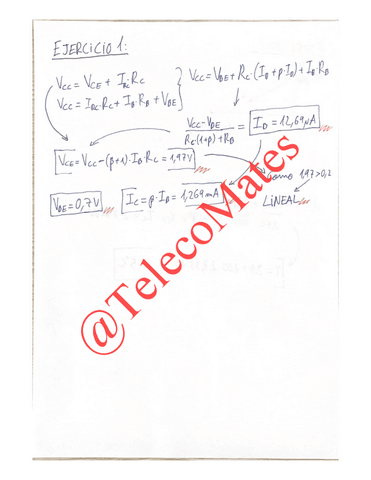 EJERCICIO 1:
Vcc = VCE + IRC·RC
Vcc = IRC·RC + IB·RB + VBE
Vcc = VBE + RC·(IB + β·IB) + IB·RB
Vcc - VBE / RC(1+β) + RB = IB = 12,69μA
VCE = Vcc - (β+1)·IB·RC = 1,97V
como 1,97 > 0,2
LINEAL
VBE = 0,7V
IC = β·IB = 1,269mA
@TelecoMates